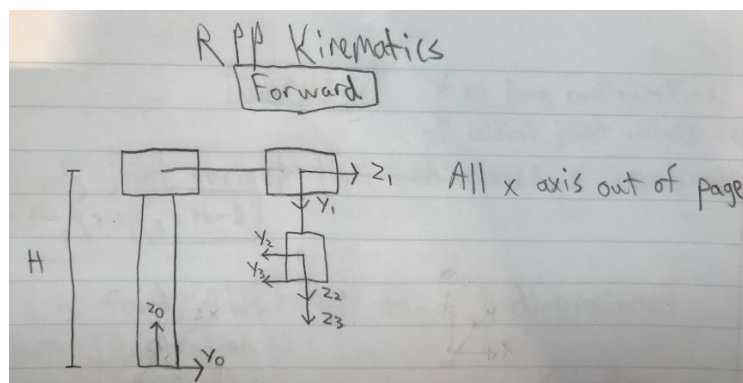 RPP Kinematics
Forward
Z1
All x axis out of page
Y1
H
Y2
Y3
Z2
Z0
Z3
Y0